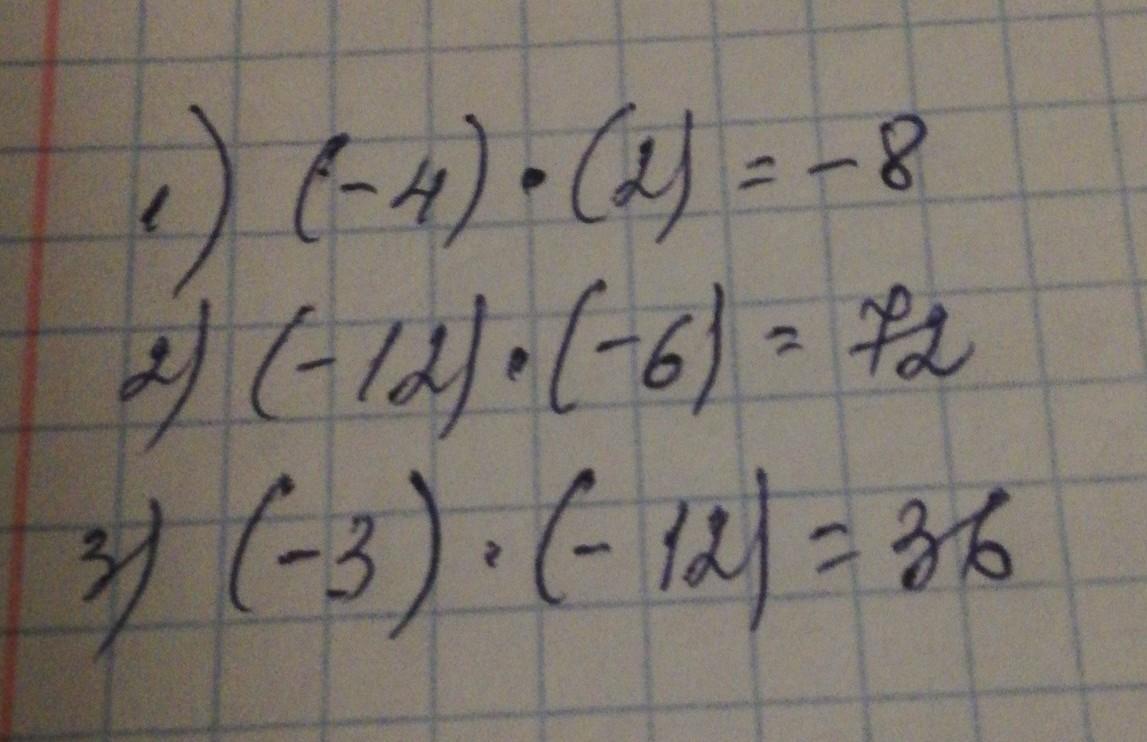 1) (-4) • (2) = -8
2) (-12) • (-6) = 72
3) (-3) • (-12) = 36